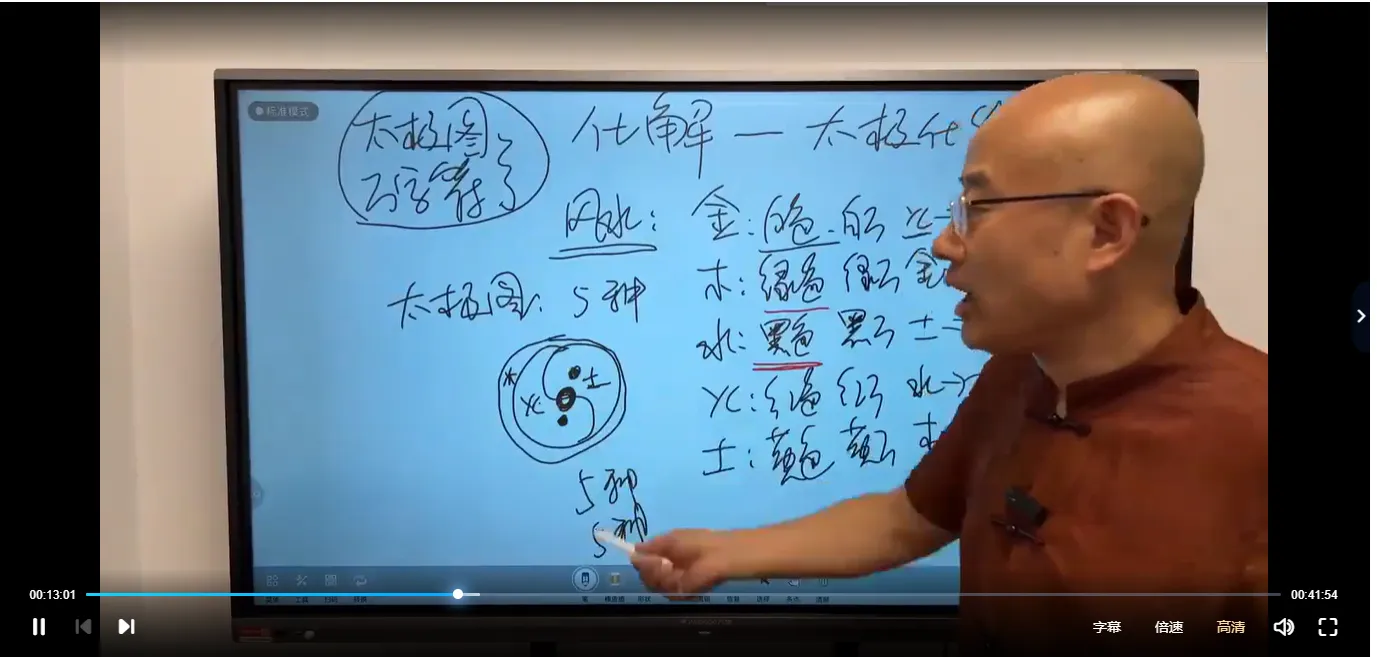 标准模式
太极图
了
化解 — 太极化
风水:
金: 白色. 白
太极图: 5种
木: 绿色 绿 金
水: 黑色 黑 土
火: 红色 红 水→火
土: 黄色 黄 木
木
火
土
5种
5种
00:13:01
00:41:54
字幕
倍速
高清